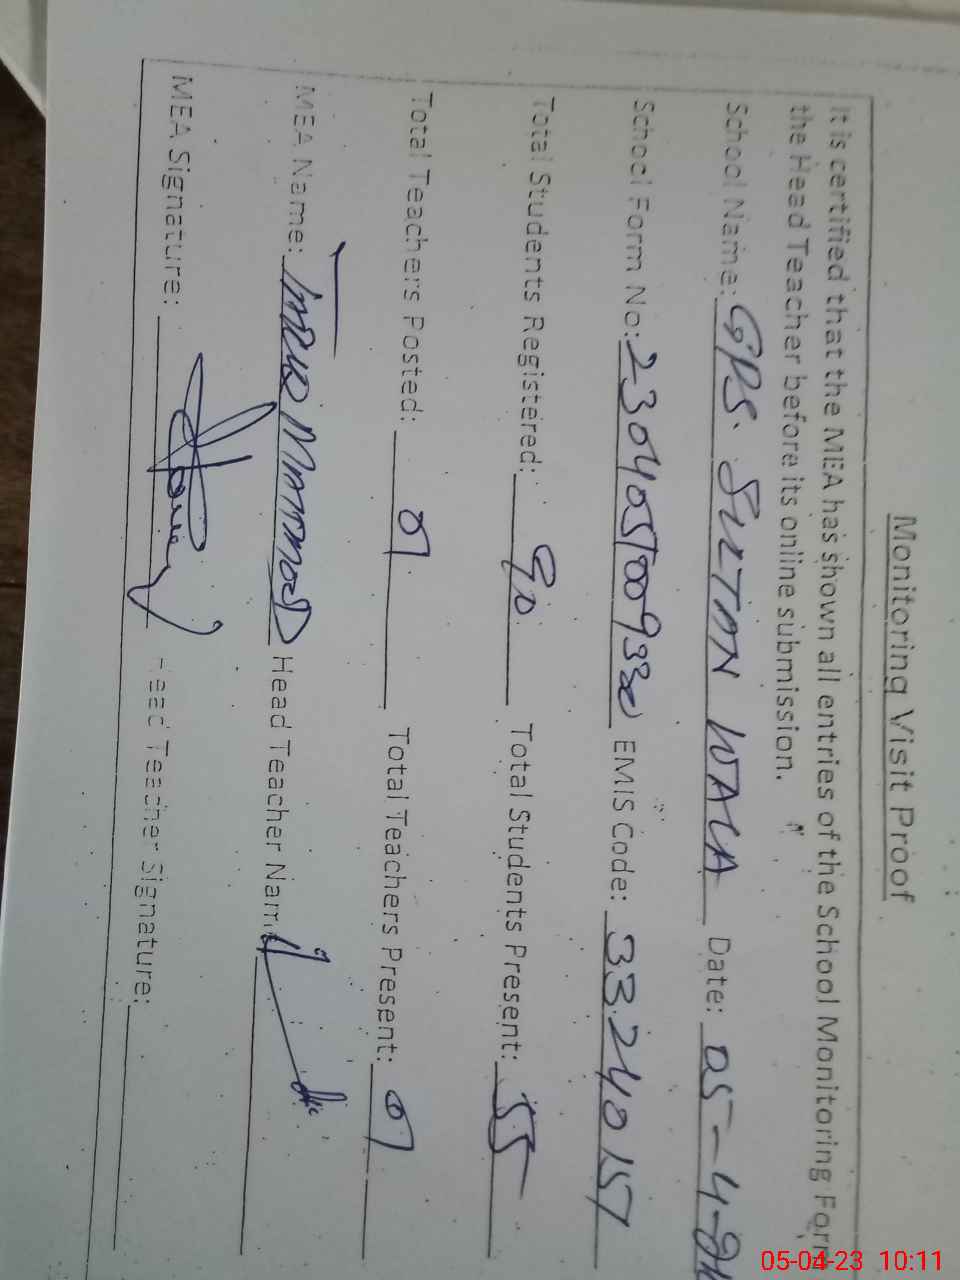 Monitoring Visit Proof
It is certified that the MEA has shown all entries of the School Monitoring Form
the Head Teacher before its online submission.
School Name: GPS. SULTAN WALA Date: 05-4-
School Form No: EMIS Code: 33240157
Total Students Registered: 90 Total Students Present: 55
Total Teachers Posted: 01 Total Teachers Present: 01
MEA Name: Head Teacher Nam
MEA Signature: Head Teacher Signature:
05-04-23 10:11